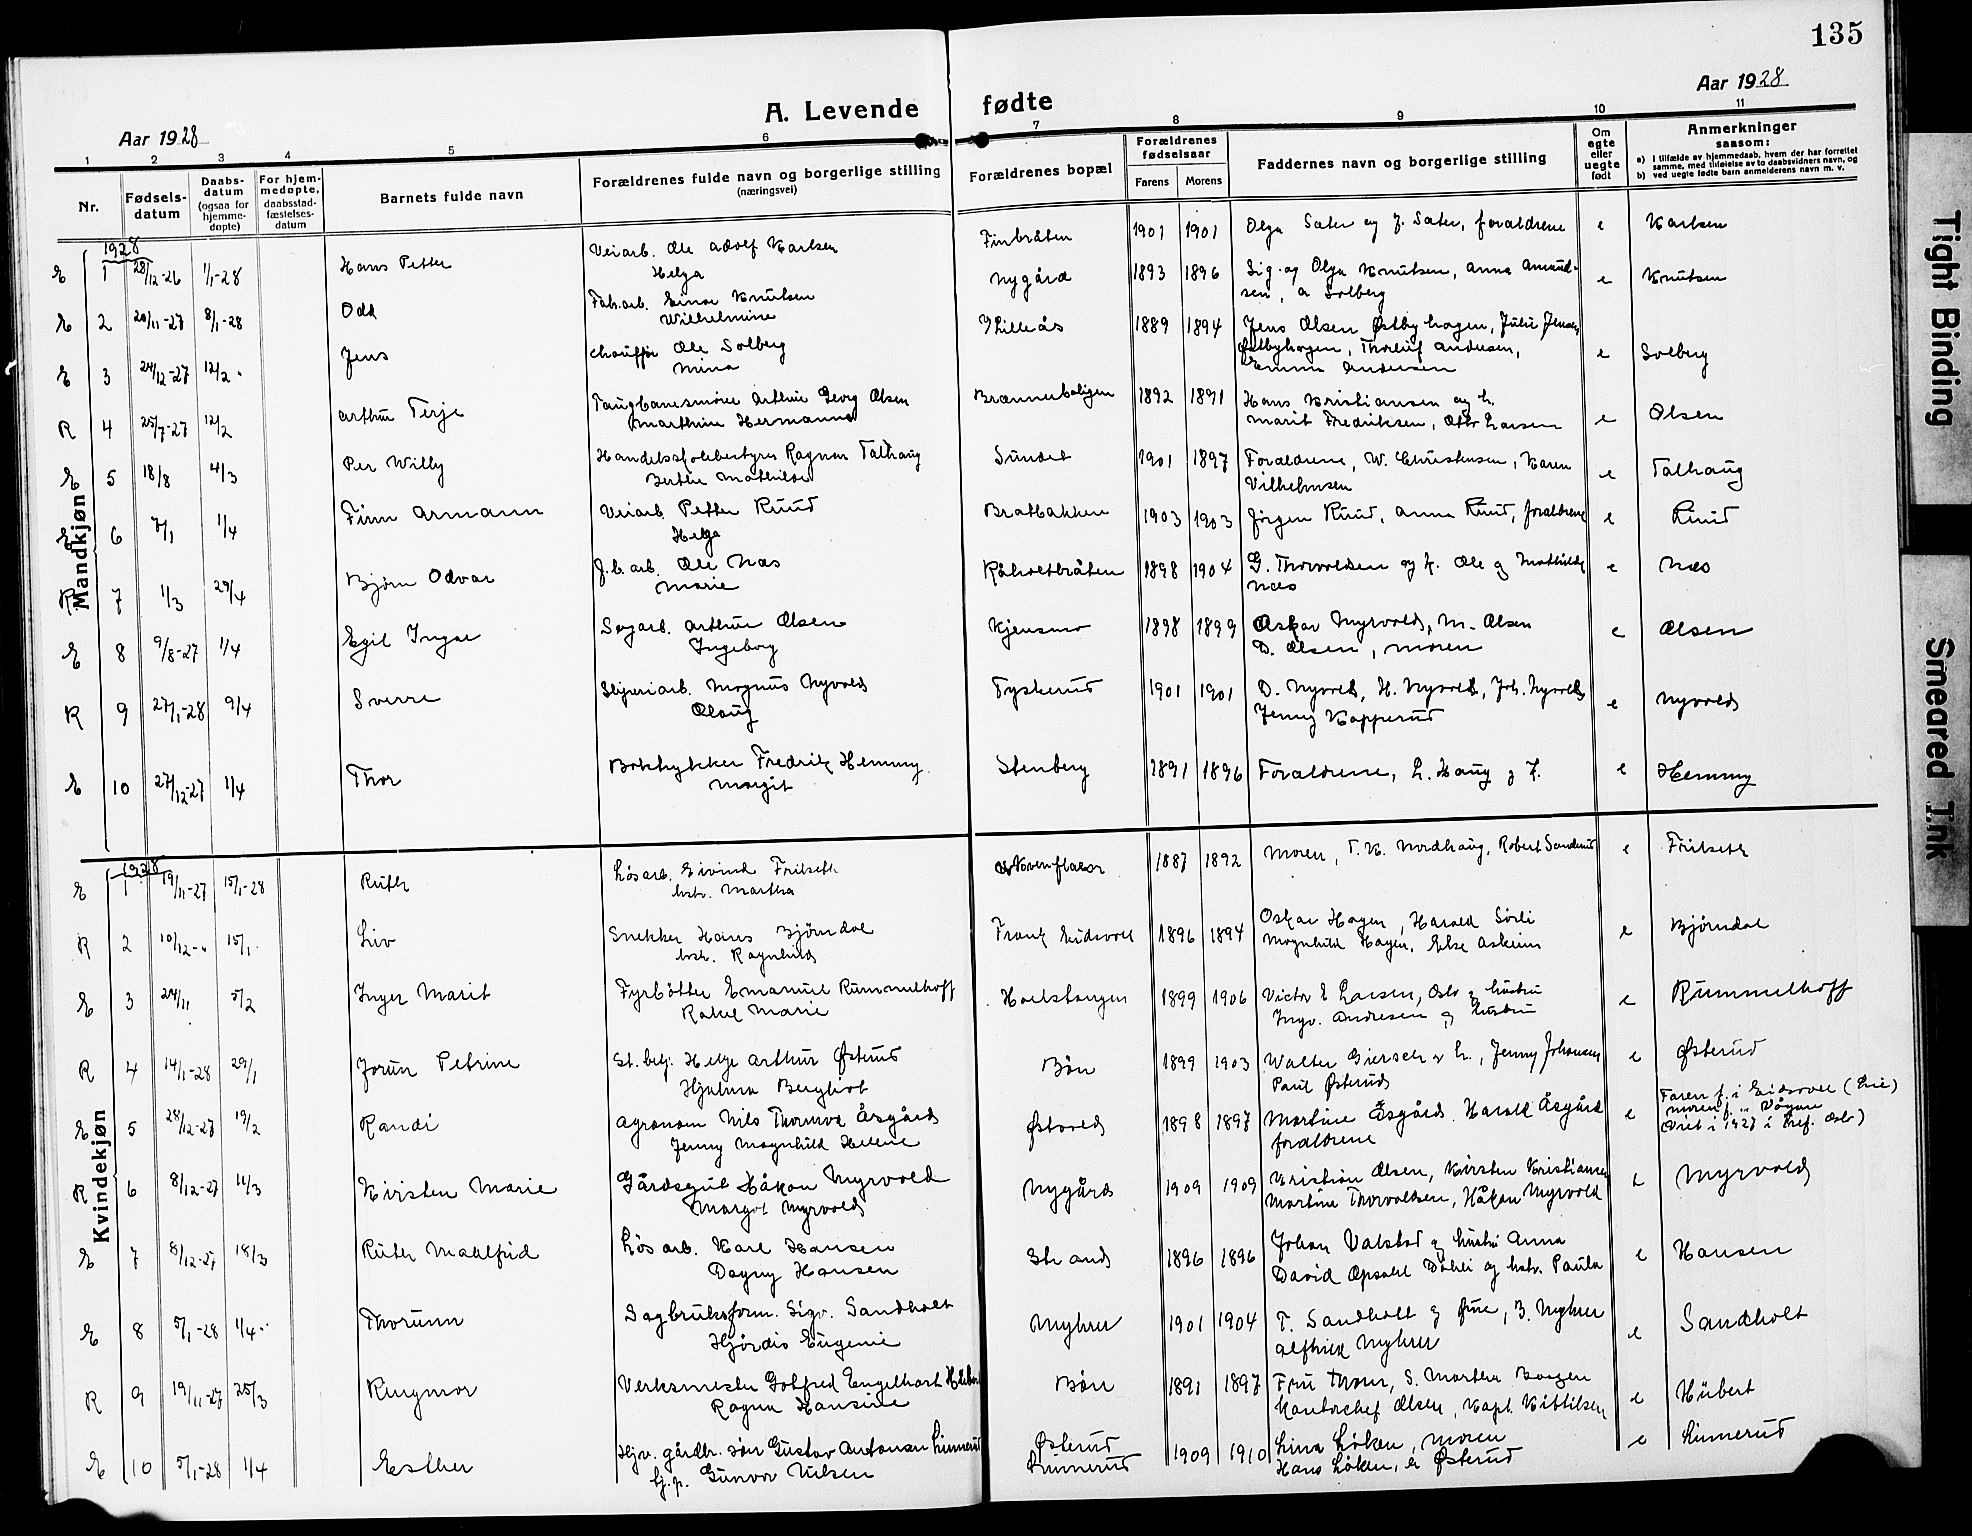 135
A. Levende fødte
Aar 1928
Aar 1928
1 2 3 4 5 6 7 8 9 10 11
Nr.
Fødsels-datum
Daabs-datum (ogsaa for hjemme-døpte)
For hjem-medøpte, daabsstad-fæstelses-datum
Barnets fulde navn
Forældrenes fulde navn og borgerlige stilling (næringsvei)
Forældrenes bopæl
Forældrenes fødselsaar
Farens Morens
Faddernes navn og borgerlige stilling
Om egte eller uegte født
Anmerkninger saasom:
a) I tilfælde av hjemmedaab, hvem der har forrettet samme, med tilføielse av to daabsvidners navn, og
b) ved uegte fødte barn anmelderens navn m. v.
Mandkjøn
1928
E 1 28/12-26 1/1-28 Hans Petter Veiarb. Ole Adolf Karlsen Finbråten 1901 1901 Olga Sæter og J. Sæter, forældrene e Karlsen
Helga
E 2 20/11-27 8/1-28 Odd Fab.arb. Einar Knutsen Nygård 1893 1896 Sig. og Olga Knutsen, Anna Amund- e Knutsen
Wilhelmine sen, A Solberg
E 3 24/12-27 12/2 Jens Chauffør Ole Solberg Lilleås 1889 1894 Jens Olsen Østbyhagen, Julie Jensen e Solberg
Mina Østbyhagen, Thorleif Andersen,
Emma Andersen
R 4 25/7-27 12/2 Arthur Terje Taugbanesmører Arthur Georg Olsen Brænneboligen 1892 1891 Hans Kristiansen og h. e Olsen
Marthine Hermanna Marit Fredriksen, Otto Larsen
E 5 18/8 4/3 Per Willy Handelsfuldbestyrer Ragnar Talhaug Sundet 1901 1897 Forældrene, W. Christensen, Karen e Talhaug
Berthe Mathilde Vilhelmsen
E 6 7/1 1/4 Finn Armann Veiarb. Petter Ruud Bratbakken 1903 1903 Jørgen Ruud, Anna Ruud, forældrene e Ruud
Helga
R 7 1/3 29/4 Bjørn Odvar J.b.arb. Ole Næs Råholtbråten 1898 1904 G. Thorvaldsen og h. Ole og Mathilde e Næs
Marie Næs
E 8 9/8-27 1/4 Egil Ingar Sagarb. Arthur Olsen Kjensmo 1898 1899 Oskar Myrvold, M. Olsen e Olsen
Ingeborg D. Olsen, moren
R 9 27/1-28 9/4 Sverre Sliperiarb. Magnus Nyvold Tyskerud 1901 1901 D. Nyvold, H. Nyvold, Joh. Nyvold e Nyvold
Olaug Jenny Kopperud
E 10 27/12-27 1/4 Thor Boktrykker Fredrik Hemmy Stenberg 1891 1896 Forældrene, L. Haug og f. e Hemmy
Margit
Kvindekjøn
1928
E 1 19/11-27 15/1-28 Ruth Løsarb. Eivind Fritseth 1887 1892 Moren, T. K. Nordhaug, Robert Sanderud e Fritseth
hstr. Martha
R 2 10/12-" 15/1 Liv Snekker Hans Bjørndal Eidsvoll 1896 1894 Oskar Hagen, Harald Sørli e Bjørndal
hstr. Ragnhild Magnhild Hagen, Else Askeim
E 3 24/11 5/2 Inger Marit Fyrbøtter Emanuel Rummelhoff Hoelstangen 1899 1906 Victor E Larsen, Oslo og hustru e Rummelhoff
Rakel Marie Ingv. Andresen og hustru
R 4 14/1-28 29/1 Jorun Petrine St.betj. Helge Arthur Østerud Bøn 1899 1903 Walter Giersch og h., Jenny Johansen e Østerud
Hjalma Berghirt Paul Østerud
E 5 28/12-27 19/2 Randi Agronom Nils Thormod Åsgård Østvold 1898 1897 Martine Åsgård. Harald Åsgård e Faren f. i Eidsvoll (Lie)
Jenny Magnhild Helene forældrene moren f. i Vågan
Viet i 1927 i Tref. Oslo)
R 6 8/12-27 11/3 Kirsten Marie Gårdsgut Håkon Myrvold Nygård 1909 1909 Kristian Olsen, Kirsten Kristiansen e Myrvold
Margot Myrvold Martine Thorvaldsen, Håkon Myrvold
E 7 8/12-27 18/3 Ruth Mahlfrid Løsarb. Karl Hansen Strand 1896 1896 Johan Valstad og hustru Anna e Hansen
Dagny Hansen David Opsahl Dahli og hstr. Paula
E 8 5/1-28 1/4 Thorunn Sagbruksform. Sigv. Sandholt Myhrer 1901 1904 T. Sandholt og frue, B. Myhrer e Sandholt
Hjørdis Eugenie Alfhild Myhrer
R 9 19/11-27 25/3 Rungmor Verksmester Gotfred Engelhart Hübert Bøn 1891 1897 Fru Thom, S. Martha Borgen e Hübert
Ragna Hansine Kontorchef Olsen, Kapt. Kittilsen
E 10 5/1-28 1/4 Esther Hjv. gårdbr. søn Gustav Antonsen Linnerud Østerud 1909 1910 Lina Løken, moren e Linnerud
tj.p. Gunvor Nilsen Linnerud Hans Løken, e Østerud
Tight Binding
Smeared Ink